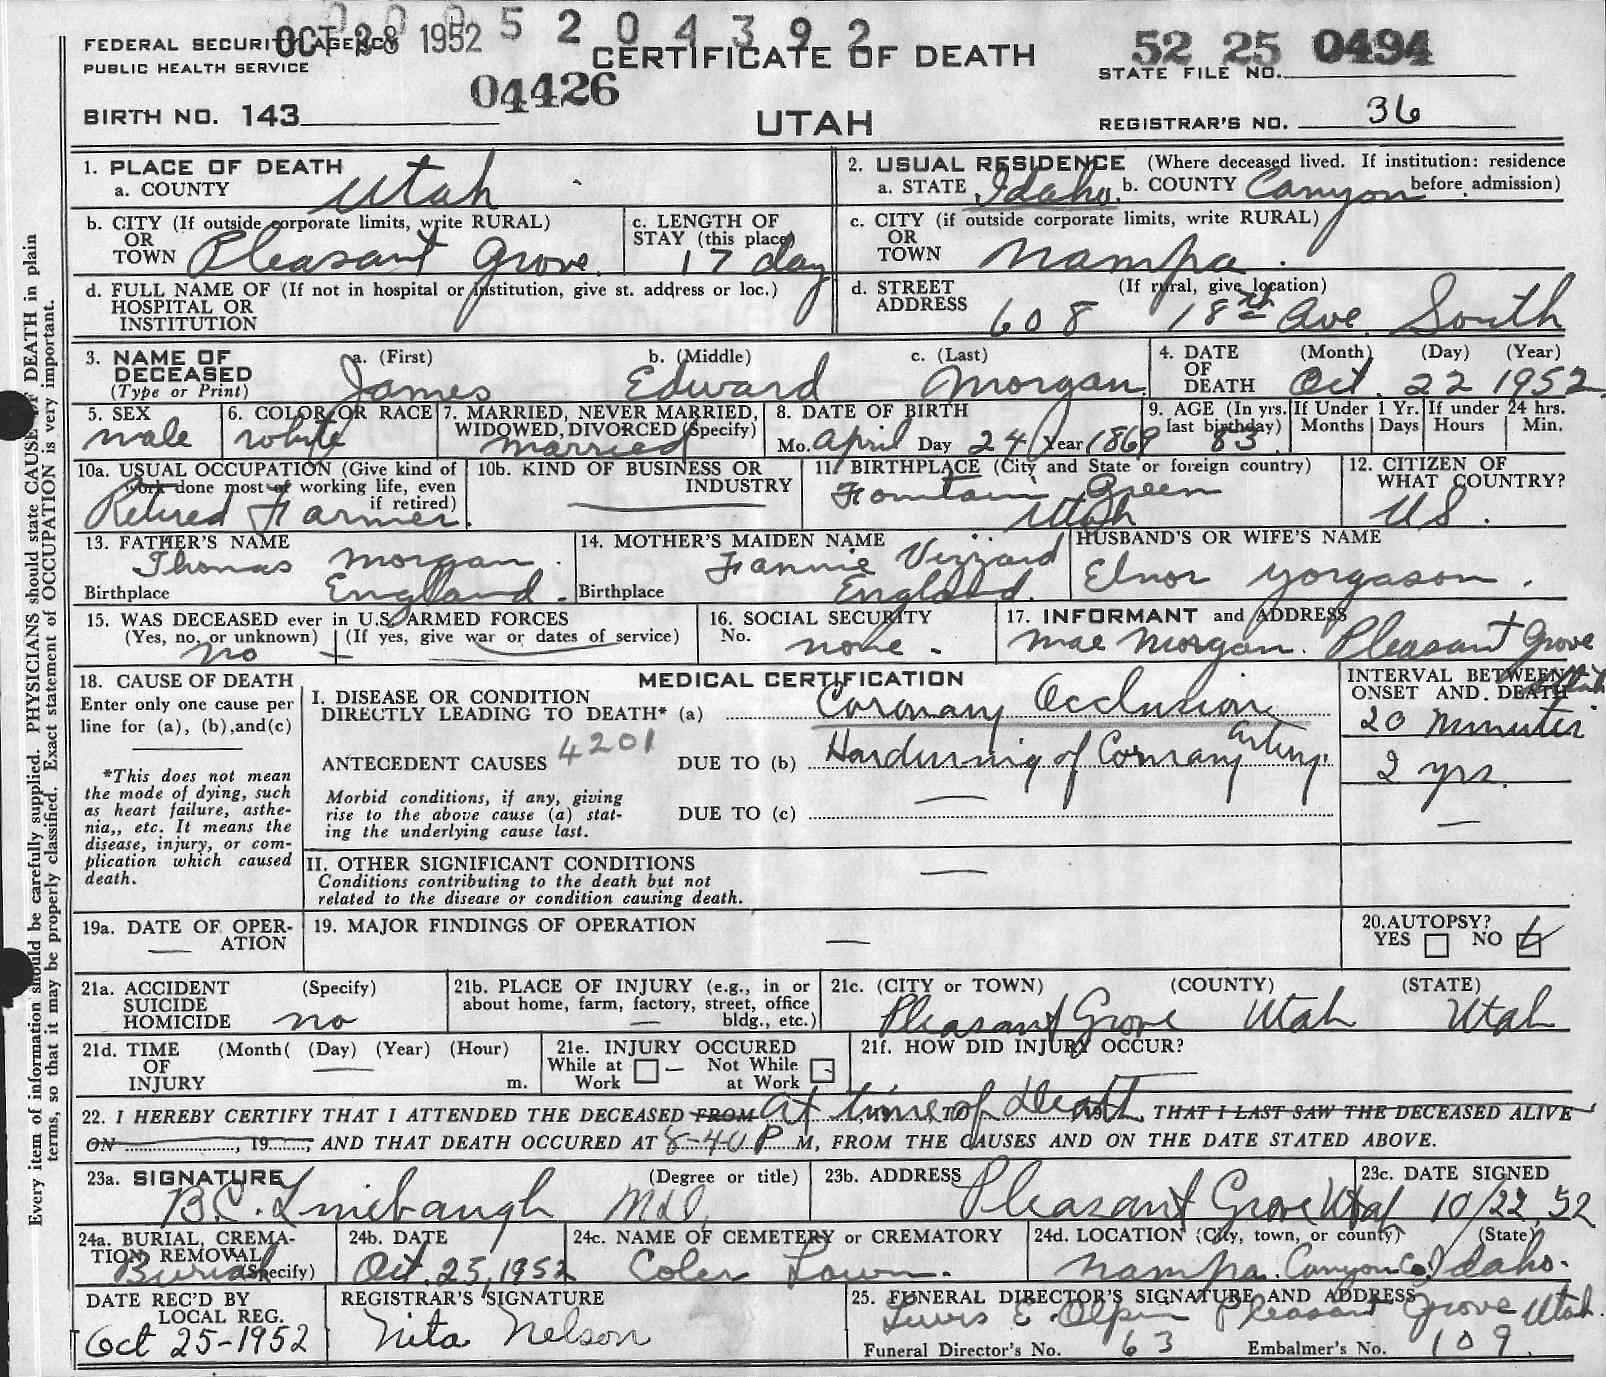 OCT 28 1952 5 2 0 4 3 9 2
FEDERAL SECURITY AGENCY
PUBLIC HEALTH SERVICE
CERTIFICATE OF DEATH
52 25 0494
STATE FILE NO.
04426
BIRTH NO. 143
UTAH
REGISTRAR'S NO. 36
1. PLACE OF DEATH
a. COUNTY Utah
2. USUAL RESIDENCE (Where deceased lived. If institution: residence before admission)
a. STATE Idaho. b. COUNTY Canyon
b. CITY (If outside corporate limits, write RURAL)
OR
TOWN Pleasant Grove.
c. LENGTH OF
STAY (this place)
17 day
c. CITY (if outside corporate limits, write RURAL)
OR
TOWN Nampa.
d. FULL NAME OF (If not in hospital or institution, give st. address or loc.)
HOSPITAL OR
INSTITUTION
d. STREET (If rural, give location)
ADDRESS 608 18th Ave. South
3. NAME OF DECEASED
(Type or Print)
a. (First) b. (Middle) c. (Last)
James Edward Morgan
4. DATE OF DEATH (Month) (Day) (Year)
Oct. 22 1952
5. SEX
male
6. COLOR OR RACE
white
7. MARRIED, NEVER MARRIED,
WIDOWED, DIVORCED (Specify)
married
8. DATE OF BIRTH
Mo. April Day 24 Year 1869
9. AGE (In yrs. last birthday) 83
If Under 1 Yr.
Months Days
If under 24 hrs.
Hours Min.
10a. USUAL OCCUPATION (Give kind of
work done most of working life, even
if retired)
Retired Farmer.
10b. KIND OF BUSINESS OR
INDUSTRY
11. BIRTHPLACE (City and State or foreign country)
Fountain Green
Utah
12. CITIZEN OF
WHAT COUNTRY?
US.
13. FATHER'S NAME
Thomas Morgan.
Birthplace England.
14. MOTHER'S MAIDEN NAME
Fannie Vizzard
Birthplace England.
HUSBAND'S OR WIFE'S NAME
Elnor Yorgason.
15. WAS DECEASED ever in U.S. ARMED FORCES
(Yes, no, or unknown) (If yes, give war or dates of service)
No
16. SOCIAL SECURITY
No. none.
17. INFORMANT and ADDRESS
Mae Morgan. Pleasant Grove
Utah
18. CAUSE OF DEATH
Enter only one cause per
line for (a), (b), and (c)
*This does not mean
the mode of dying, such
as heart failure, asthe-
nia,, etc. It means the
disease, injury, or com-
plication which caused
death.
MEDICAL CERTIFICATION
INTERVAL BETWEEN
ONSET AND DEATH
I. DISEASE OR CONDITION
DIRECTLY LEADING TO DEATH* (a) Coronary Occlusion
20 minutes
4201
ANTECEDENT CAUSES DUE TO (b) Hardening of Coronary artery.
2 yrs.
Morbid conditions, if any, giving
rise to the above cause (a) stat-
ing the underlying cause last.
DUE TO (c)
II. OTHER SIGNIFICANT CONDITIONS
Conditions contributing to the death but not
related to the disease or condition causing death.
19a. DATE OF OPER-
ATION
19. MAJOR FINDINGS OF OPERATION
20. AUTOPSY?
YES NO
21a. ACCIDENT (Specify)
SUICIDE
HOMICIDE no
21b. PLACE OF INJURY (e.g., in or
about home, farm, factory, street, office
bldg., etc.)
21c. (CITY or TOWN) (COUNTY) (STATE)
Pleasant Grove Utah Utah
21d. TIME (Month( (Day) (Year) (Hour)
OF
INJURY m.
21e. INJURY OCCURED
While at Work Not While at Work
21f. HOW DID INJURY OCCUR?
22. I HEREBY CERTIFY THAT I ATTENDED THE DECEASED FROM At time of Death, THAT I LAST SAW THE DECEASED ALIVE
ON , 19 , AND THAT DEATH OCCURED AT 8-40 P M, FROM THE CAUSES AND ON THE DATE STATED ABOVE.
23a. SIGNATURE (Degree or title)
B.C. Linebaugh M.D.
23b. ADDRESS
Pleasant Grove Utah
23c. DATE SIGNED
10/22,52
24a. BURIAL, CREMA-
TION REMOVAL
(Specify)
Burial
24b. DATE
Oct. 25, 1952
24c. NAME OF CEMETERY or CREMATORY
Coler Lawn.
24d. LOCATION (City, town, or county) (State)
Nampa. Canyon Co. Idaho.
DATE REC'D BY
LOCAL REG.
Oct 25-1952
REGISTRAR'S SIGNATURE
Nita Nelson
25. FUNERAL DIRECTOR'S SIGNATURE AND ADDRESS
Lewis E. Olpin Pleasant Grove Utah.
Funeral Director's No. 63 Embalmer's No. 109.
Every item of information should be carefully supplied. PHYSICIANS should state CAUSE OF DEATH in plain
terms, so that it may be properly classified. Exact statement of OCCUPATION is very important.